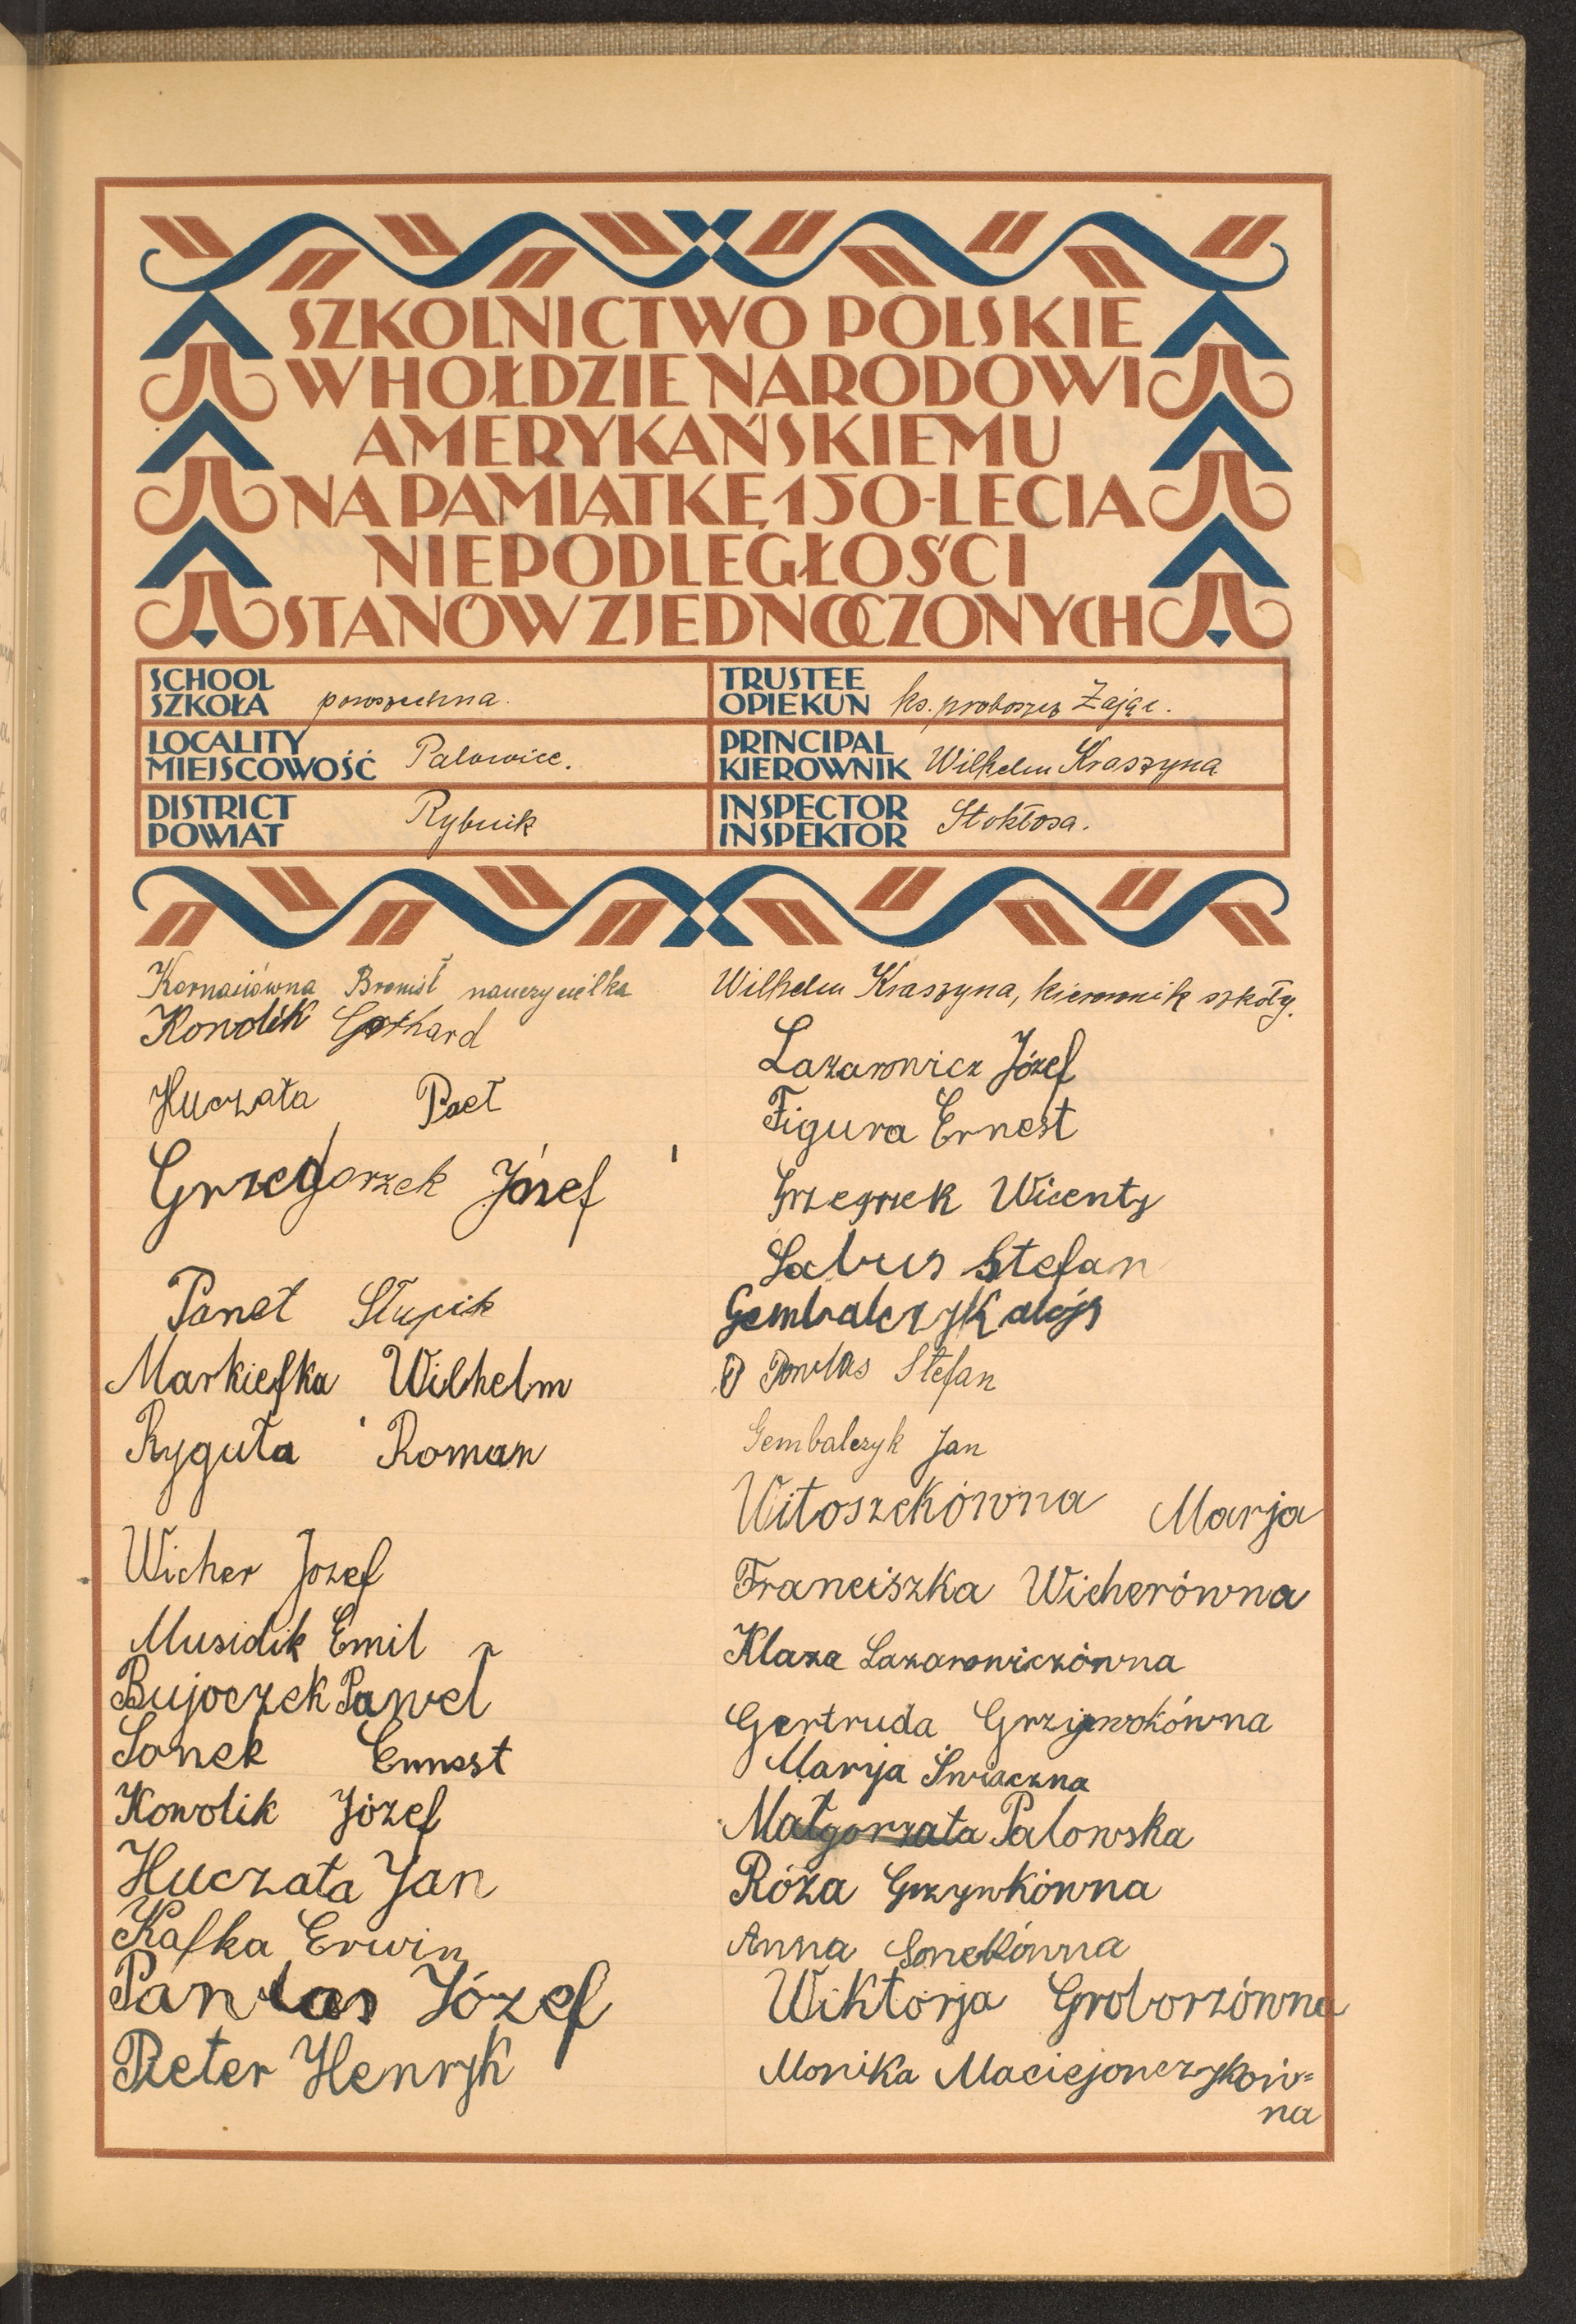 SZKOLNICTWO POLSKIE
W HOŁDZIE NARODOWI
AMERYKAŃSKIEMU
NA PAMIĄTKĘ 150-LECIA
NIEPODLEGŁOŚCI
STANÓW ZJEDNOCZONYCH
SCHOOL
SZKOŁA powszechna.
TRUSTEE
OPIEKUN ks. proboszcz Zając.
LOCALITY
MIEJSCOWOŚĆ Palowice.
PRINCIPAL
KIEROWNIK Wilhelm Kraszyna
DISTRICT
POWIAT Rybnik
INSPECTOR
INSPEKTOR Stokłosa.
Karnasiówna Bronisł nauczycielka
Kowolik Gothard
Huczała Paeł
Grzegorzek Józef
Paneł Słupik
Markiefka Wilhelm
Ryguła Roman
Wicher Jozef
Musiolik Emil
Bujoczek Paweł
Sonek Ernest
Kowolik Józef
Huczała Jan
Kafka Erwin
Pawlas Józef
Pieter Henryk
Wilhelm Kraszyna, kierownik szkoły.
Lazarowicz Józef
Figura Ernest
Wicenty
Labus Stefan
Gembalczyk alojs
Pawlas Stefan
Gembalczyk Jan
Witoszekówna Marja
Franciszka Wicherówna
Klara Lazarowiczówna
Gertruda
Maryja Świaczna
Małgorzata Palowska
Róża
Anna Sonekówna
Wiktorja Groborzówna
Monika Maciejonczyków=
na